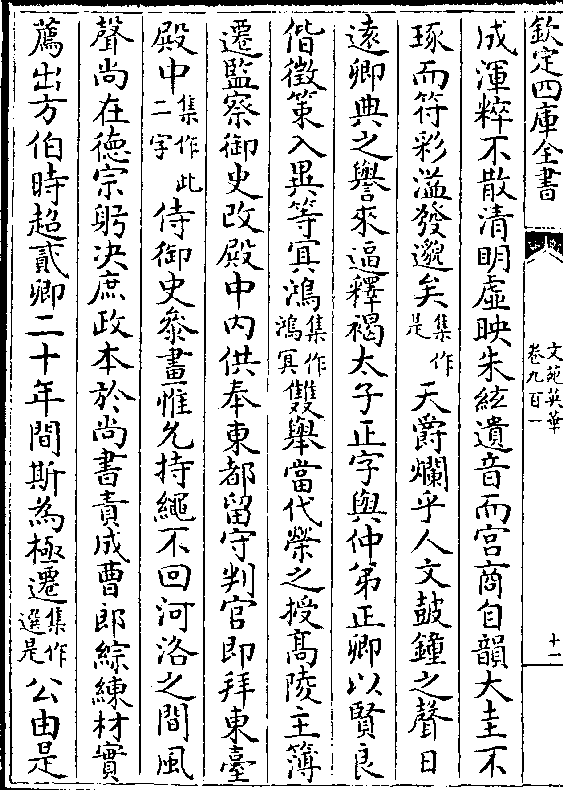 欽定四庫全書
文苑英華
卷九百一
十一
成渾粹不散清明虛映朱絃遺音而宫商自韻大圭不
琢而符彩溢發邈矣集作是天爵爛乎人文鼓鐘之聲日
遠卿典之譽來逼釋褐太子正字與仲弟正卿以賢良
偕徵策入異等㝠鴻集作鴻㝠雙舉當代榮之授髙陵主簿
遷監察御史改殿中内供奉東都留守判官即拜東臺
殿中集作此二字侍御史叅畫惟允持繩不回河洛之間風
聲尚在德宗躬決庶政本於尚書責成曹郎綜練材實
薦出方伯時超貳卿二十年間斯為極遷集作選是公由是